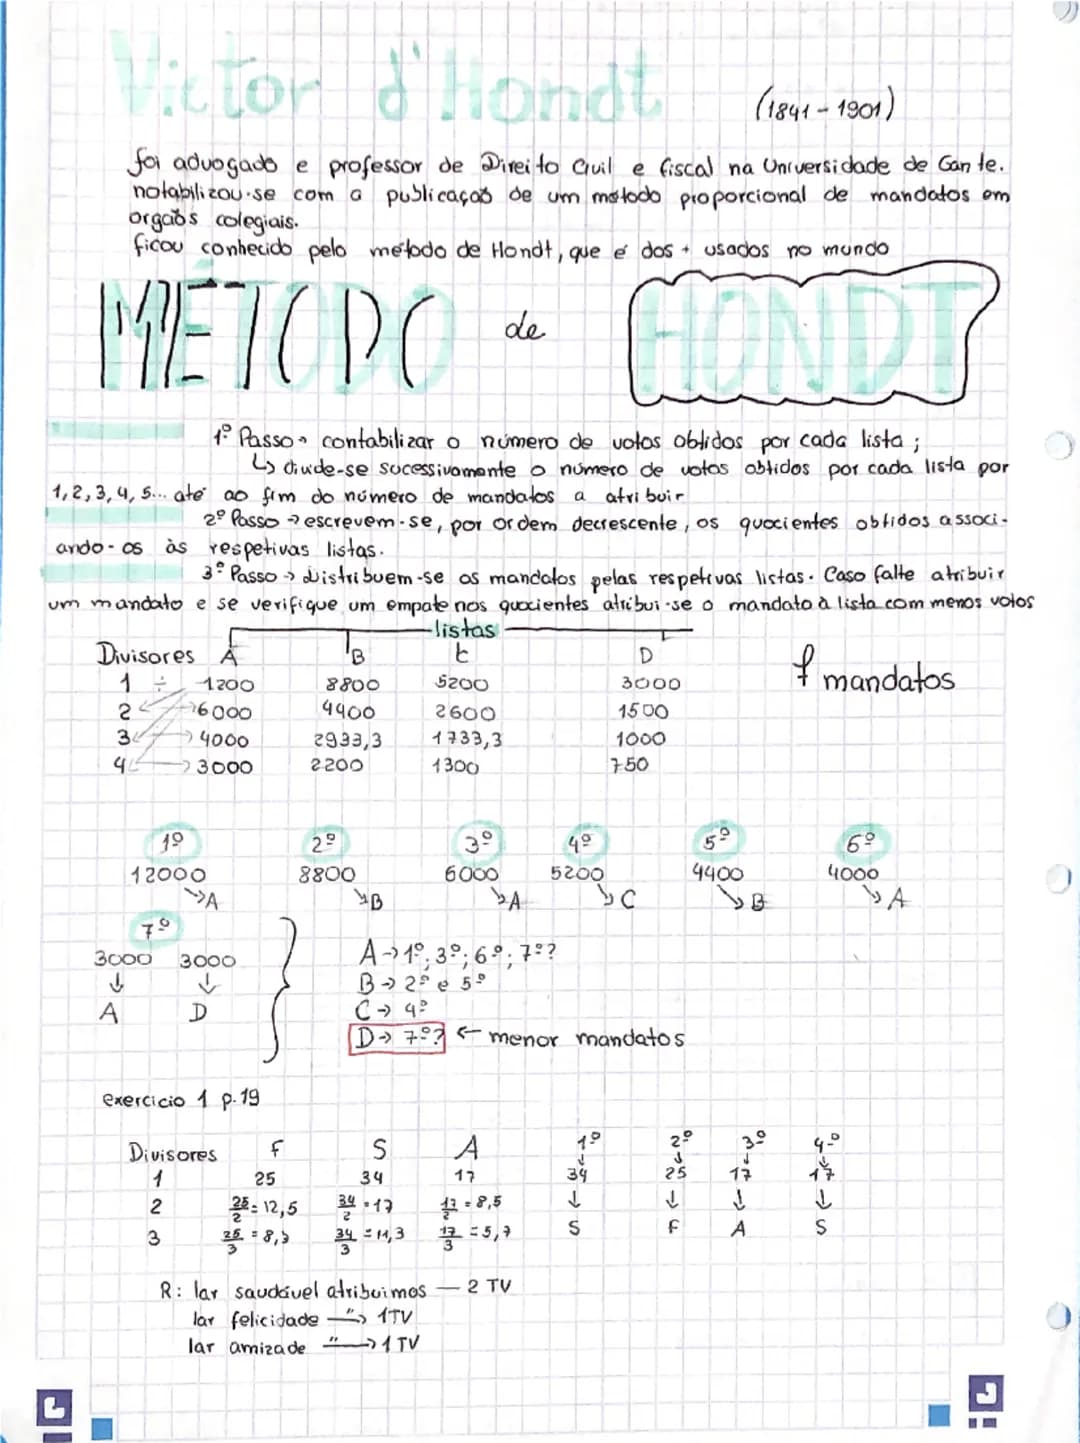 Victor d'Hondt (1841 - 1901)
foi advogado e professor de Direito Civil e fiscal na Universidade de Gante.
notabilizou-se com a publicação de um método proporcional de mandatos em
orgãos colegiais.
ficou conhecido pelo método de Hondt, que é dos + usados no mundo
MÉTODO de HONDT
1º Passo → contabilizar o número de votos obtidos por cada lista ;
↳ divide-se sucessivamente o número de votos obtidos por cada lista por
1, 2, 3, 4, 5... até ao fim do número de mandatos a atribuir
2º Passo → escrevem-se, por ordem decrescente, os quocientes obtidos associ-
ando-os às respetivas listas.
3º Passo → Distribuem-se os mandatos pelas respetivas listas. Caso falte atribuir
um mandato e se verifique um empate nos quocientes atribui-se o mandato à lista com menos votos
listas
Divisores A B C D
7 mandatos
1 ÷ 1200 8800 5200 3000
2 6000 4400 2600 1500
3 → 4000 2933,3 1733,3 1000
4 → 3000 2200 1300 750
1º 2º 3º 4º 5º 6º
12000 8800 6000 5200 4400 4000
→A →B →A →C →B →A
7º
3000 3000
↓ ↓
A D
A → 1º; 3º; 6º; 7º?
B → 2º e 5º
C → 4º
D → 7º? ← menor mandatos
exercicio 1 p.19
Divisores F S A 1º 2º 3º 4º
1 25 34 17 34 25 17 17
2 25/2 = 12,5 34/2 = 17 17/2 = 8,5 ↓ ↓ ↓ ↓
3 25/3 = 8,3 34/3 = 11,3 17/3 = 5,7 S F A S
R: lar saudável atribuimos — 2 TV
lar felicidade —"→ 1TV
lar amizade —"→ 1 TV